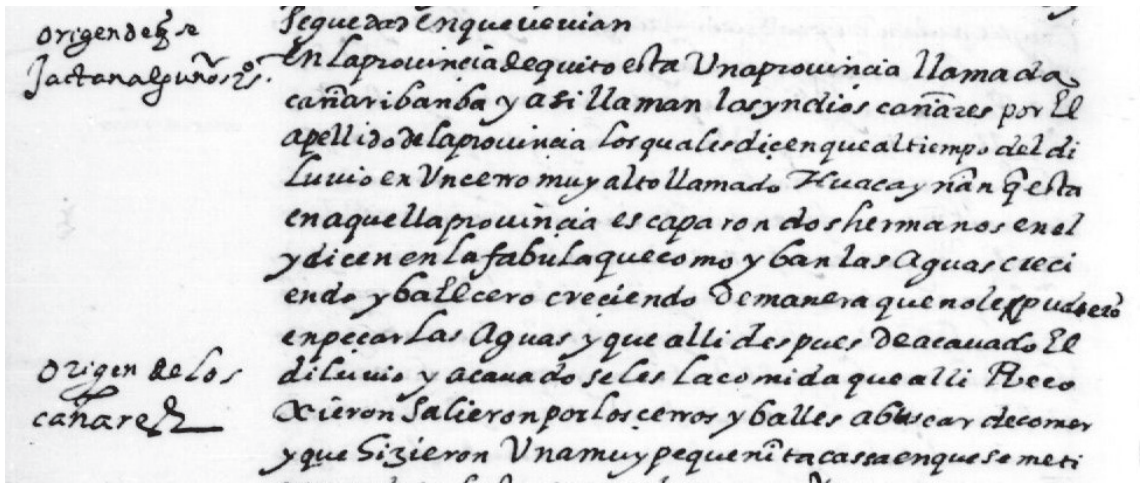 origen de q̃ se
Jactan algunos
sequedad en que vevian
En la provincia de quito esta Una provincia llamada
cañaribanba y asi llaman los yndios cañares por El
apellido de la provincia los quales dicen que al tiempo del di
luuio en Un cerro muy alto llamado Huacayñan q̃ esta
en aquella provincia escaparon dos hermanos en el
y dicen en la fabula que como yban las Aguas creci
endo yba El cero creciendo De manera que no les pudiero
enpecer Las Aguas y que alli despues De acauado El
origen de los
cañares
diluuio y acauadoseles la comida que alli Reco
xieron Salieron por los cerros y balles a buscar de comer
y que hizieron Una muy pequeñita cassa en que se meti